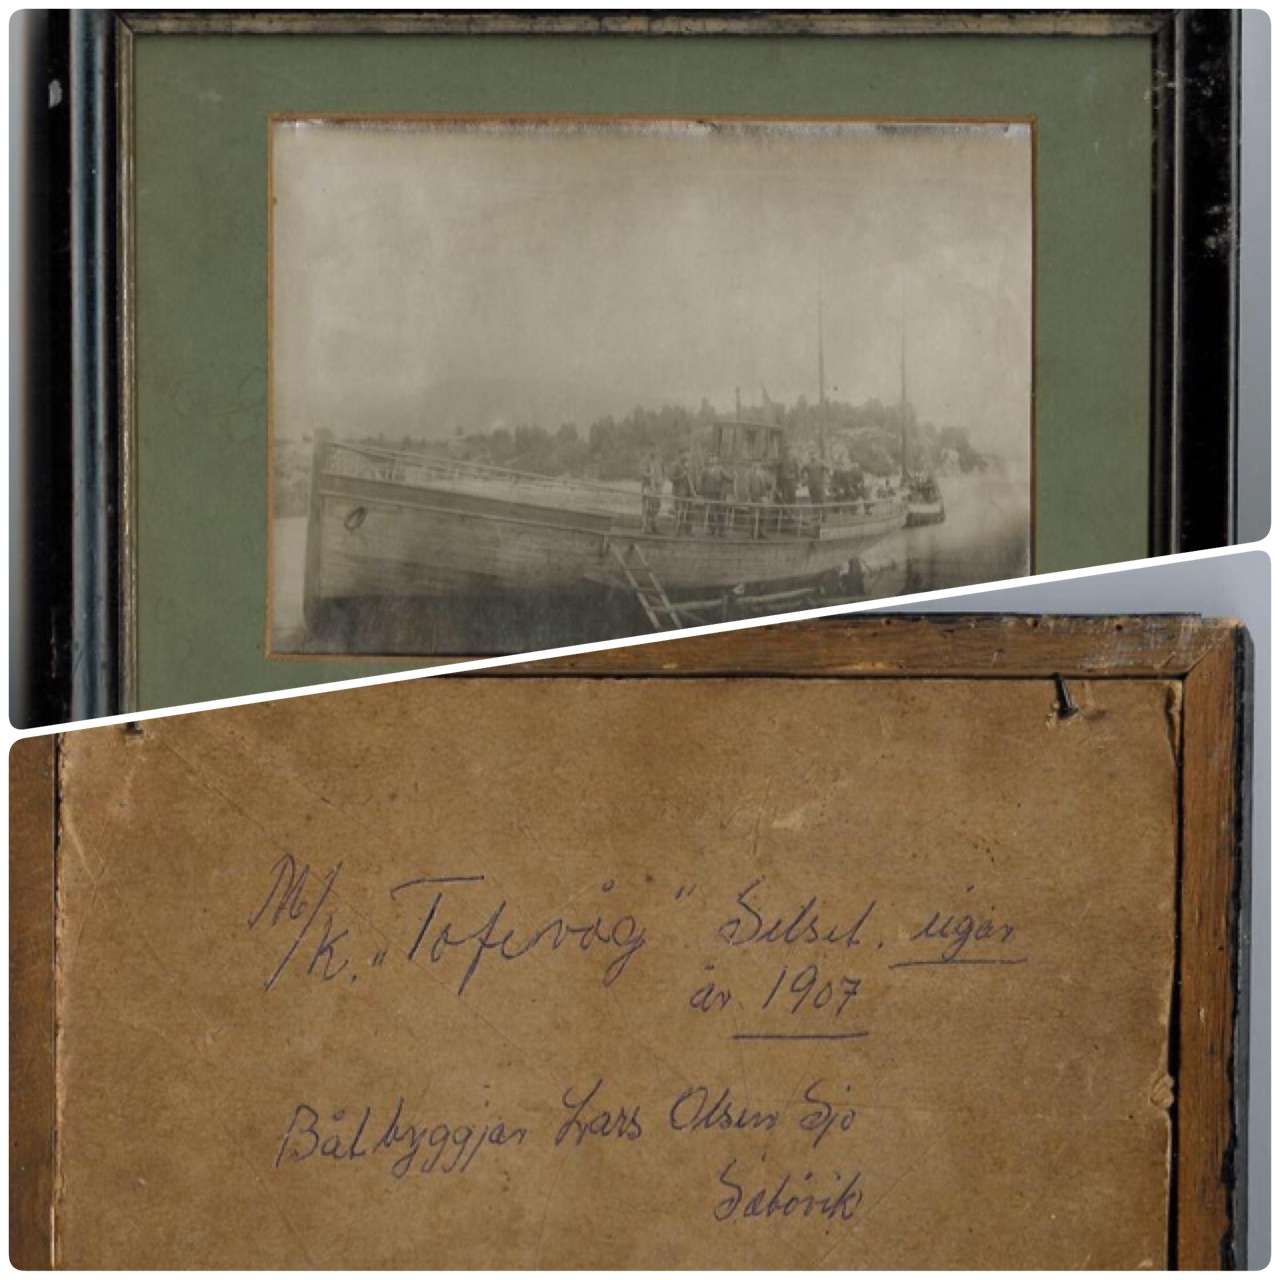 M/K. „Tofevåg" Sitset. eigar
år. 1907
Båtbyggjar Lars Olsen Sjo
Sæbövik